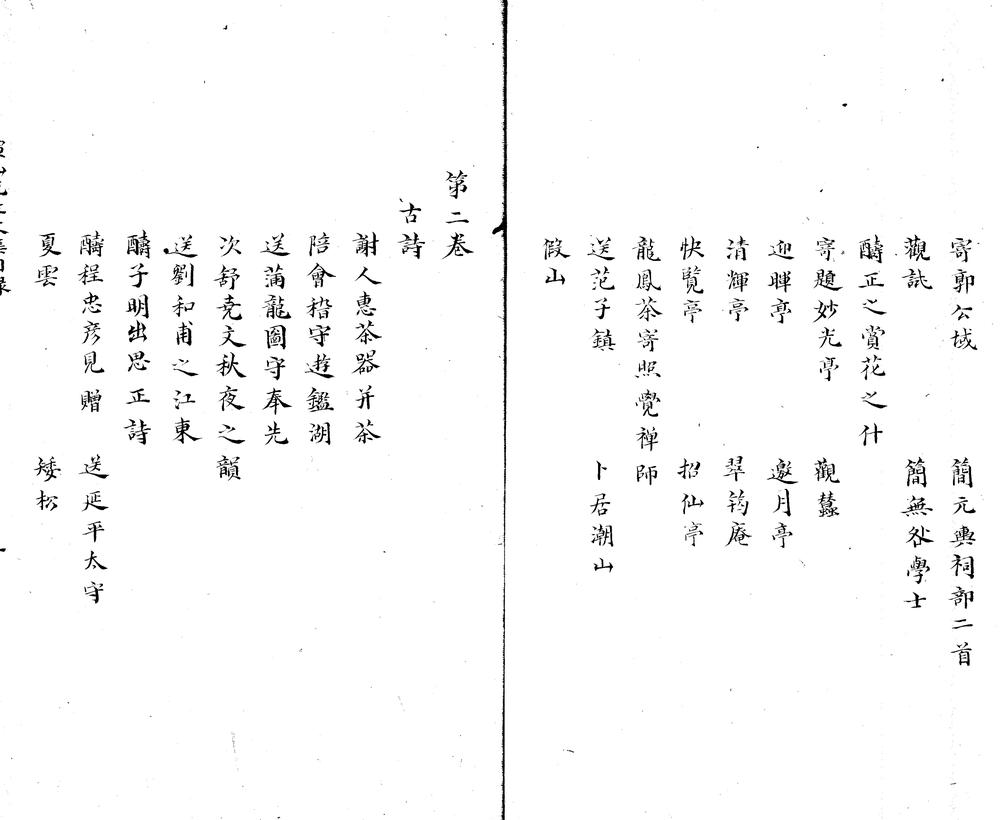 寄郭公域　簡元輿祠部二首
觀訛　簡無咎學士
醻正之賞花之什
寄題妙光亭　觀蠶
迎暉亭　邀月亭
清輝亭　翠筠庵
快覽亭　招仙亭
龍鳳茶寄照覺禅師
送范子鎮　卜居潮山
假山
第二卷
古詩
謝人惠茶器并茶
陪會稽守遊鑑湖
送蒲龍圖守奉先
次舒堯文秋夜之韻
送劉和甫之江東
醻子明出思正詩
醻程忠彥見贈　送延平太守
夏雲　矮松